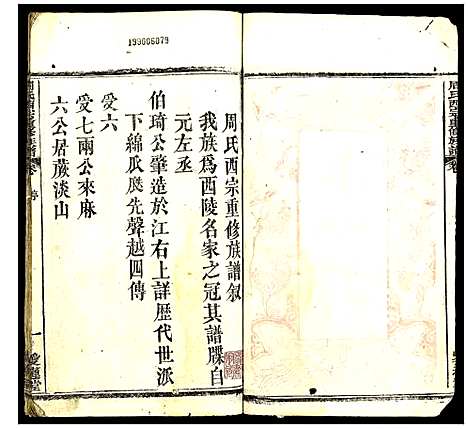 周氏西宗重修族譜叙
我族爲西陵名家之冠其譜牒自
元左丞
伯琦公肇造於江右上詳歷代世派
下綿瓜瓞先聲越四傳
愛六
愛七兩公來麻
六公居蕨淡山
199606079
一
愛蓮堂